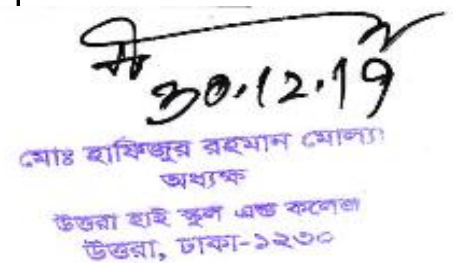 30.12.19
মোঃ হাফিজুর রহমান মোল্যা
অধ্যক্ষ
উত্তরা হাই স্কুল এন্ড কলেজ
উত্তরা, ঢাকা-১২৩০